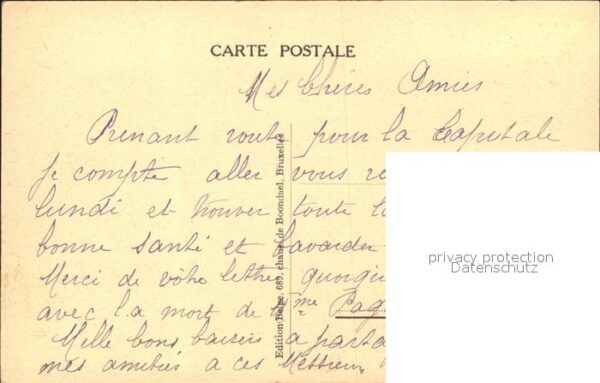 CARTE POSTALE
Mes Chères Amies
Prenant route pour la Capitale
je compte aller vous re
lundi et trouver toute la
bonne santé et bavarder
Merci de votre lettre, quoiqu
avec la mort de Mme Pag
Mille bons baisers a parta
mes amitiés a ces Messieurs
Edition Belge, 689, chaus. de Boondael, Bruxelles
privacy protection
Datenschutz